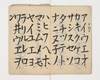 アイウエオ
カキクケコ
サシスセソ
タチツテト
ナニヌネノ
ハヒフヘホ
マミムメモ
ヤイユエヨ
ラリルレロ
ワヰウヱヲ